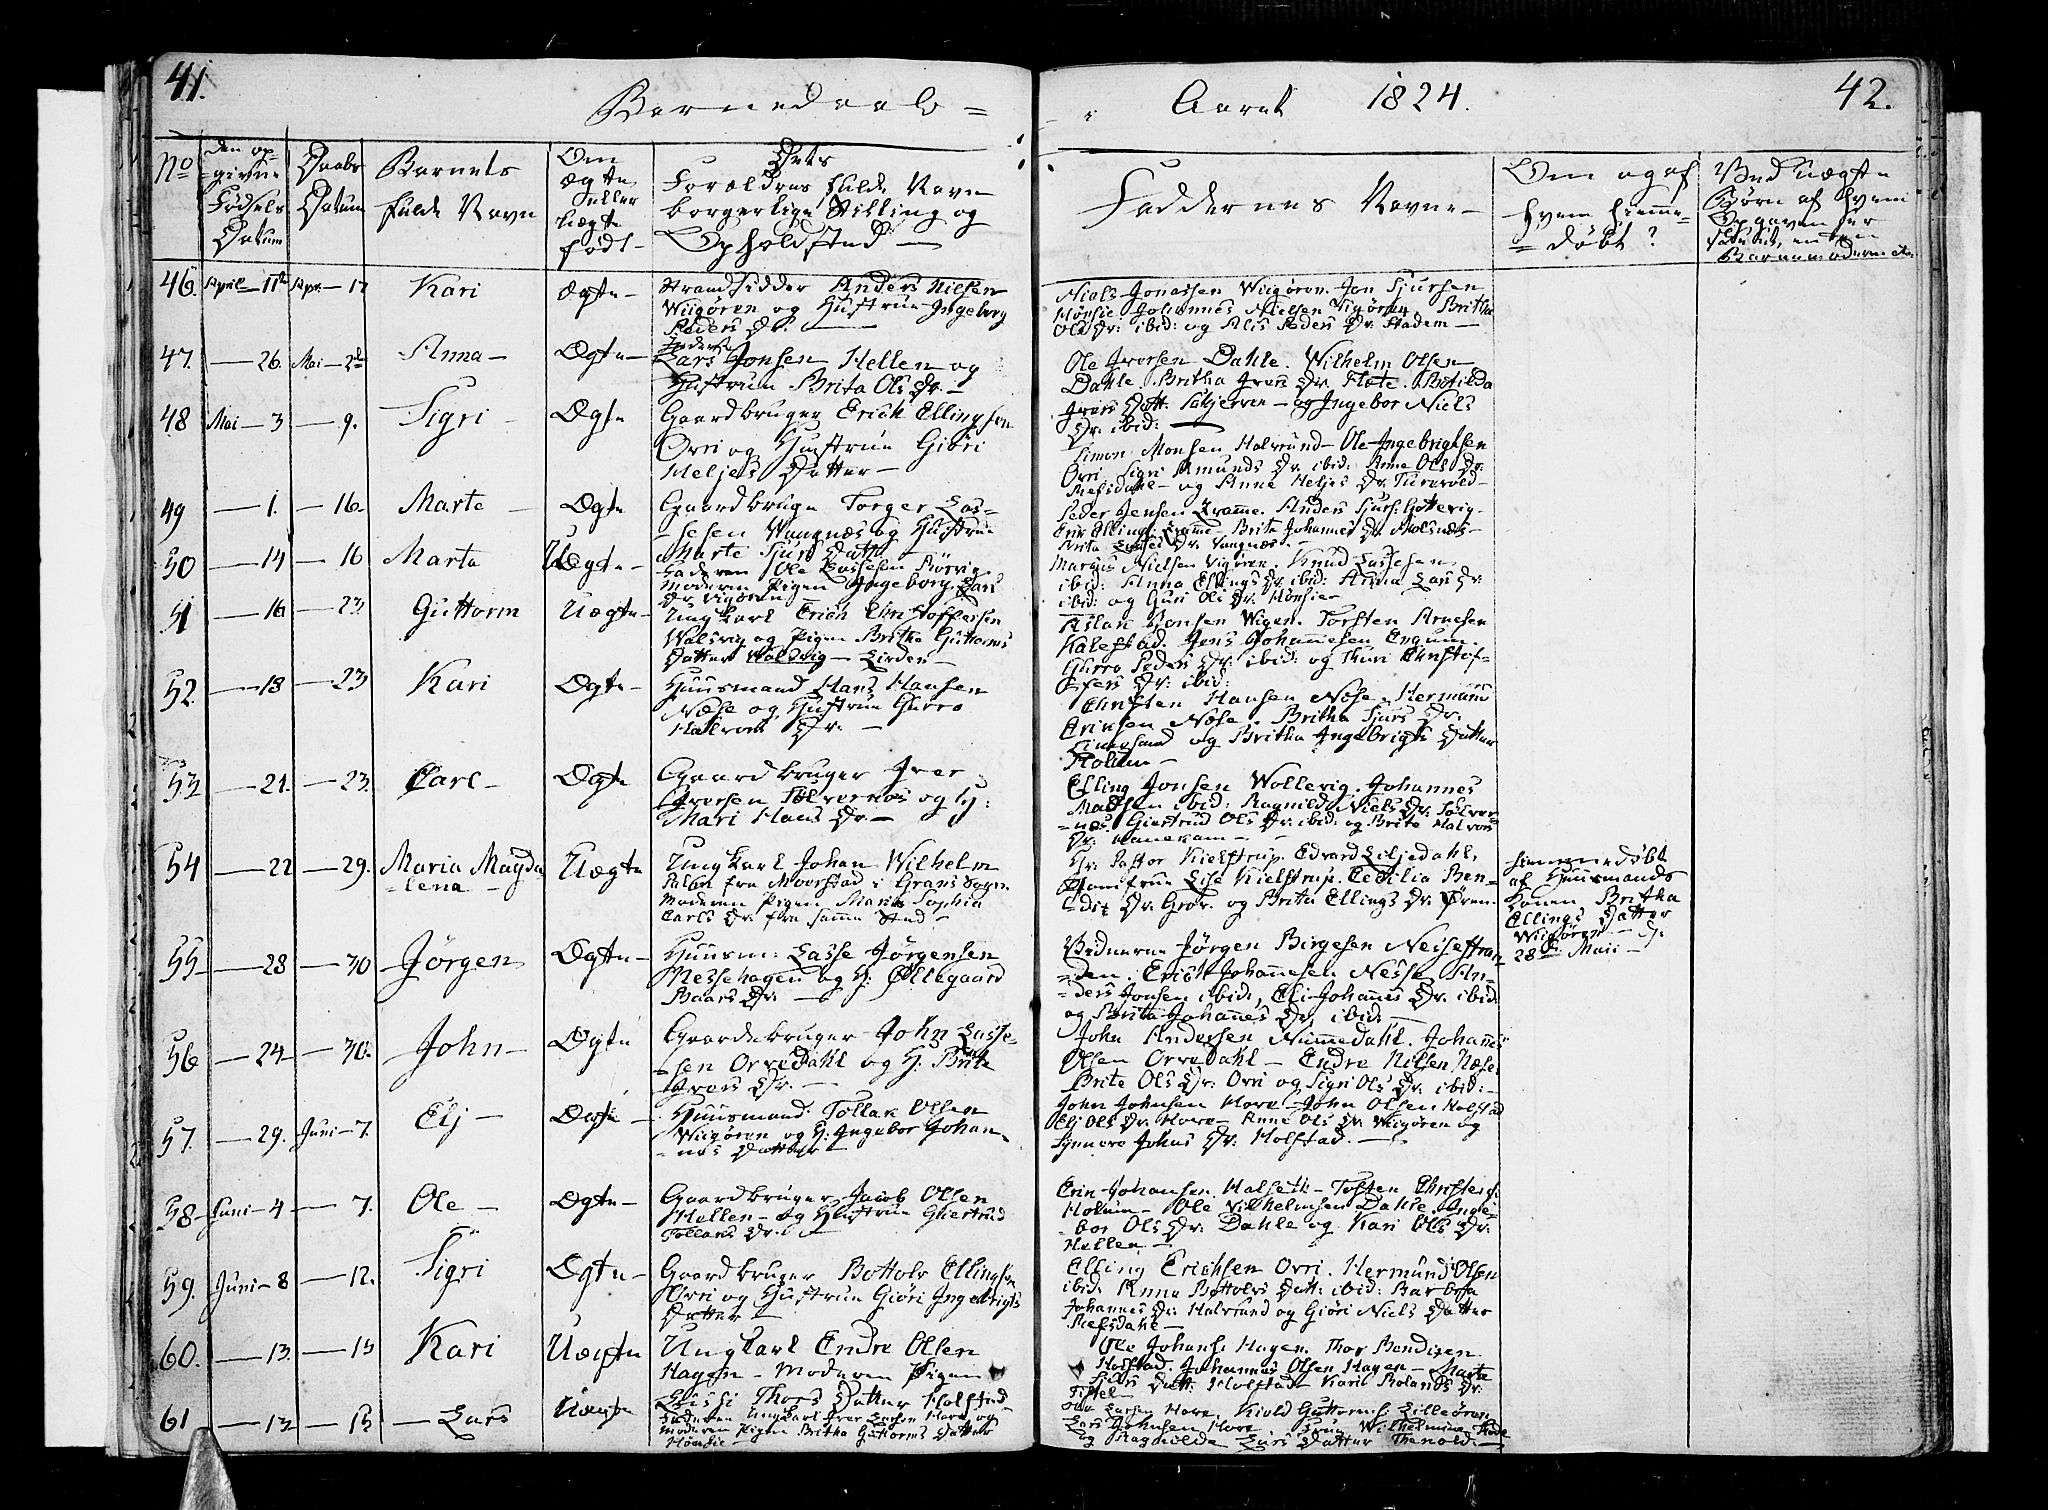 41.
Barnedaab =
i Aaret 1824.
42.
No
den op-
givne
Fødsels
Datum
Daabs
Datum
Barnets
fulde Navn
Om
Ægte
eller
Uægte
født
Dets
Forældres fulde Navn
borgerlige Stilling og
Opholdsted —
Faddernes Navne —
Om og af
hvem hiemme-
= døbt?
Ved Uægte
Børn af hvem
Opgaven er
46. April — 11te Apr. — 17 Kari Ægte —
Strandsidder Anders Nilsen
Wiigøren og Hustrue Ingeborg
Peders Dr. —
Niels Jonassen Wiigøren. Jon Sjursen
Hønsie Johannes Nielsen Vigøren Britha
Ols Dr: ibid: og Alis Peders Dr. Stadem —
47. — 26. Mai — 2de Anna — Ægte —
Lars Jonsen Hellen og
Hustrue Brita Ols Dr. —
Ole Iversen Dahle. Wilhelm Olsen
Dahle. Britha Ivers Dr. Flete. Botilda
Ivers Datt. Skjerven — og Ingebor Niels
Dr. ibid: —
48 Mai — 3 — 9. Sigri — Ægte
Gaardbruger Erich Ellingsen
Orri og Hustrue Giøri
Heljes Datter —
Simon Monsen Halvrund — Ole Ingebrigtsen
Orri Sigri Amunds Dr. ibid: Anne Ols Dr.
Refsdahl — og Anne Heljes Dr.
49 — 1. — 16. Marte — Ægte
Gaardbruger Torger Las-
-sesen Wangnæs og Hustrue
Marte Sjurs Datter
Peder Jensen Framme. Anders Sjurs.
Erik Ellings. Framme — Brita Johannes Dr.
Brita Lasses Dr. Vangnæs. —
50 — 14 — 16 Marta Uægte —
Faderen Ole Lassesen
Moderen Pigen Ingeborg Lars
Dr. Vigøren
Marqus Nielsen Vigøren. Knud Lassesen
ibid: Anna Ellings Dr. ibid: Anna Lars Dr.
ibid: og Guri Ols Dr. Hønsie —
51 — 16 — 23 Guttorm Uægte —
Ungkarl Erich Christoffersen
Walsvig og Pigen Britha Guttorms
Datter Walsvig —
Aslak Jonsen Wigen. Torsten Arnesen
Kalestad. Jens Johannesen Engum.
Guro Peders Dr. ibid: og Thuri Christof-
-fers Dr: ibid:
52. — 18 — 23 Kari Ægte —
Huusmand Hans Hansen
Næse og Hustrue Guro
Halvors Dr. —
Christen Hansen Nese. Hermund
Eriksen Nese. Britha Sjurs Dr.
og Britha Ingebrigts Datter
Holum —
53 — 21. — 23. Carl — Ægte
Gaardbruger Iver
Iversen Sølvornes og H:
Mari Hans Dr —
Elling Jonsen Wollevig. Johannes
Madsen ibid: Ragnild Niels Dr. Sølvor-
-nes. Giertrud Ols Dr: ibid: og Brite Halvors
Dr.
54 — 22 — 29. Maria Magda
-lena — Uægte
Ungkarl Johan Wilhelm
fra Moorstad i Grans Sogn
Moderen Pigen Maria Sophia
Carls Dr. fra samme Sted —
Hr. Pastor Kielstrup. Edvard Liljedahl.
Lise Kielstrup. Cecilia Ben-
-dix Dr. Grov. og Brita Ellings Dr.
Hiemmedøbt
af Huusmands
Konen Britha
Ellings Datter
Wiigøren d:
28de Maii —
55 — 28 — 30 Jørgen Ægte —
Huusm: Lasse Jørgensen
Nessehagen og H: Øllegaard
Baars Dr. —
Jørgen Birgesen Nesestran-
-den. Erich Johannesen Nesse. An-
-ders Jonsen ibid:, Eli Johannes Dr. ibid:
og Brita Johannes Dr. ibid: —
56 — 24 — 30. John — Ægte
Gaardebruger John Lasse-
-sen Orredahl og H: Brite
Ivers Dr. —
John Andersen Nummedahl. Johannes
Olsen Orredahl — Endre Nilsen Næse.
Brite Ols Dr: Orri og Sigri Ols Dr. ibid: —
57. — 29. Juni — 7. Elj — Ægte —
Huusmand. Tollak Olsen
Wiigøren og H: Ingebor Johan-
-nes Datter —
John Johnsen Hove — John Olsen Holstad
Elj Ols Dr. Hove — Anne Ols Dr Wiigøren og
Synneve Johns Dr. Holstad. —
58 — Juni — 4 — 7. Ole — Ægte —
Gaardbruger Jacob Olsen
Hellen — og Hustrue Giertrud
Tollaks Dr. —
Erik Johansen Halseth — Tosten Christens.
Holum — Ole Vilhelmsen Dahle. Inge-
-bor Ols Dr. Dahle og Kari Ols Dr.
Hellen —
59. Juni — 8 — 12. Sigri Ægte —
Gaardbruger Bottolv Ellingsen
Orri og Hustrue Giøri Ingebrigts
Datter —
Elling Erichsen Orri. Hermund Olsen
ibid: Anna Bottolvs Datt: ibid: Barbara
Johannes Dr: Halvrund og Giøri Niels Datter
Refsdahl —
60. — 13. — 15 Kari Uægte
Ungkarl Endre Olsen
Hagen — Moderen Pigen
Thors Datter Holstad
Ole Johans. Hagen. Thor Bendixen
Holstad. Johannes Olsen Hagen — Marta
Datt: Holstad — Kari Rolands Dr.
61 — 12 — 15 — Lars Uægte
Faderen Ungkarl Iver Larsen Hove og
Moderen Pigen Britha Guttorms Datter
Hønsie —
Larsen Hove. Kiold Guttorms. Lilleøren
Lars Johnsen Hove
og Ragnilda Lars Datter